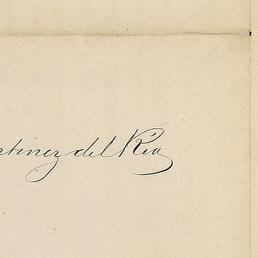 rtinez del Rio